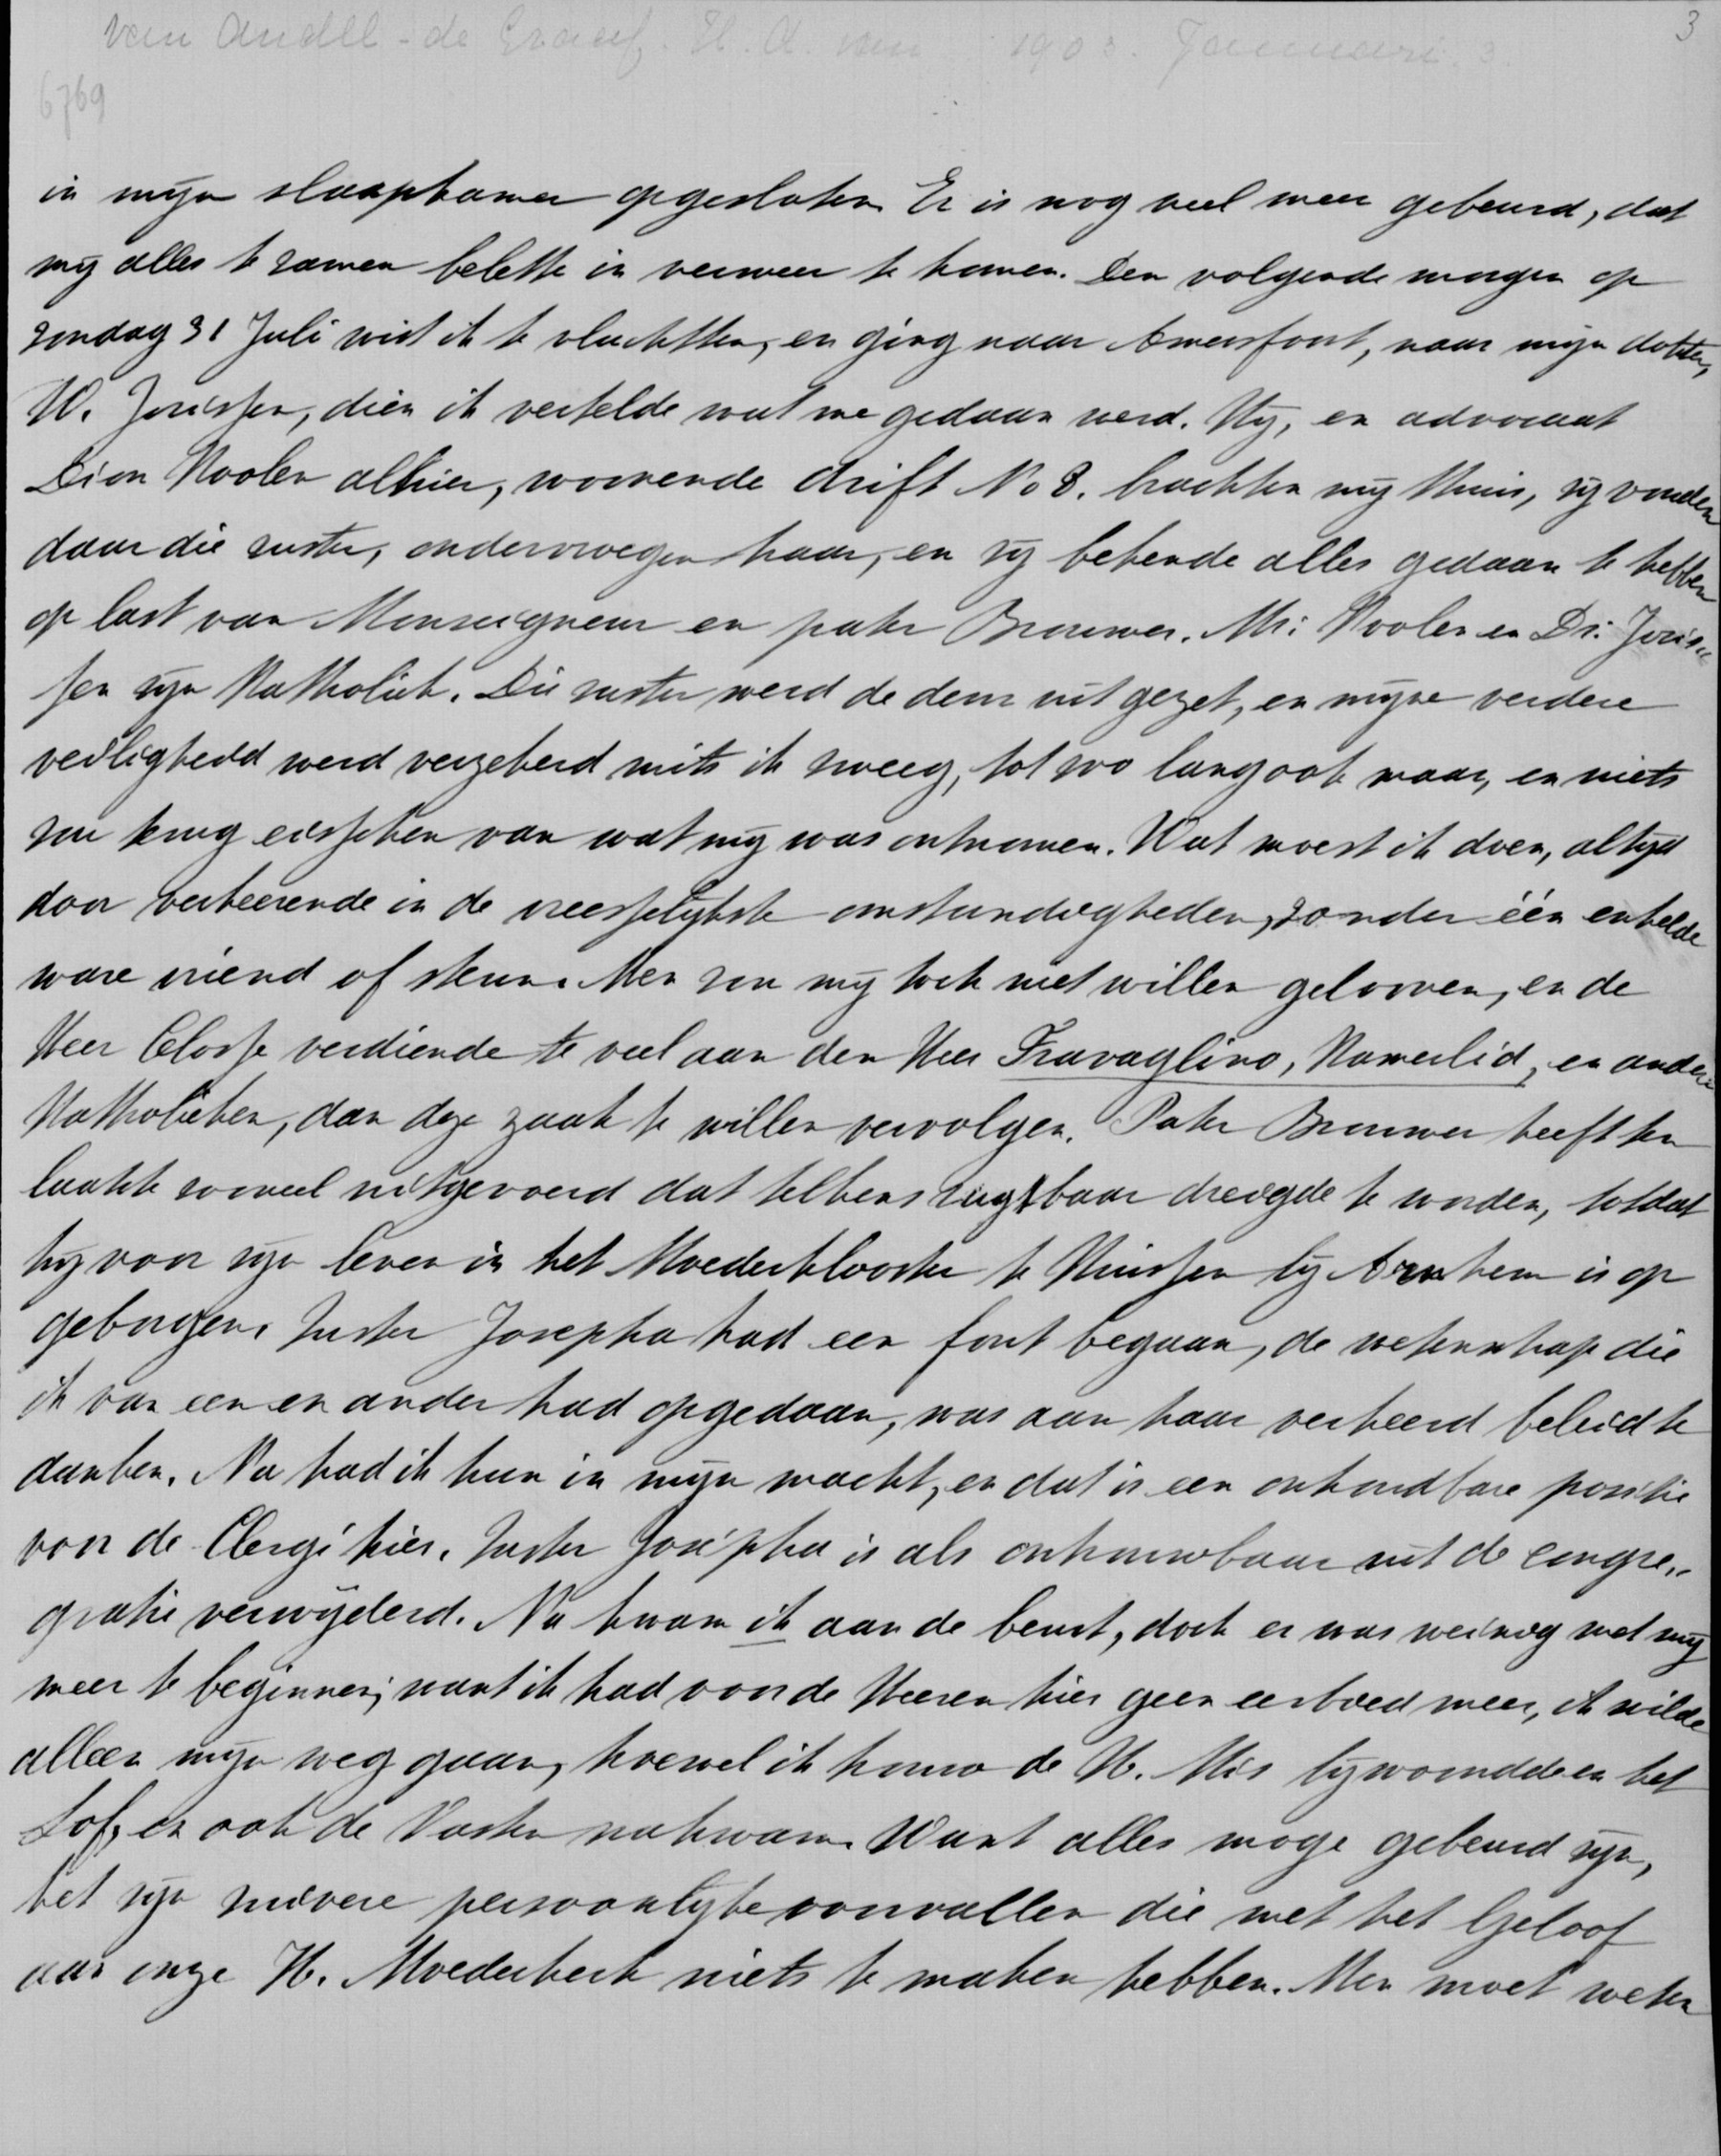 van Andel-de Graaf. H. A. van 1903. Januari 3.
3
6769
in mijn slaapkamer opgesloten. Er is nog veel meer gebeurd, dat
mij alles te zamen belette in verweer te komen. Den volgende morgen op
zondag 31 Juli wist ik te vluchtten, en ging naar Amersfoort, naar mijn dokter,
W. Jorissen, dien ik vertelde wat me gedaan werd. Hij, en advocaat
Dion Koolen alhier, woonende drift No 8. brachten mij thuis, zij vonden
daar die zuster, ondervroegen haar, en zij bekende alles gedaan te hebben
op last van Monseigneur en pater Brouwer. Mr: Koolen en Dr: Joris„
sen zijn Katholiek. Die zuster werd de deur uit gezet, en mijne verdere
veiligheid werd verzekerd mits ik zweeg, tot zoo lang ook maar, en niets
zou terug eisschen van wat mij was ontnomen. Wat moest ik doen, altijd
door verkeerende in de vreesselijkste omstandigheden, zonder één enkelde
ware vriend of steun. Men zou mij toch niet willen gelooven, en de
Heer Closse verdiende te veel aan den Heer Travaglino, Kamerlid, en andere
Katholieken, dan deze zaak te willen vervolgen. Pater Brouwer heeft ten
laatste zooveel uitgevoerd dat telkens rugtbaar dreigde te worden, totdat
hij voor zijn leven in het Moederklooster te Huissen bij Arnhem is op
geborgen. Zuster Josepha had een fout begaan, de wetenschap die
ik van een en ander had opgedaan, was aan haar verkeerd beleid te
danken. Nu had ik hun in mijn macht, en dat is een onhoudbare positie
voor de Clergé hier. Zuster Josépha is als onhoudbaar uit de congre„
gratie verwijderd. Nu kwam ik aan de beurt, doch er was weinig met mij
meer te beginnen; want ik had voor de Heeren hier geen eerbied meer, ik wilde
alleen mijn weg gaan, hoewel ik trouw de H. Mis bijwoondde en het
Lof, en ook de Vasten nakwam. Want alles moge gebeurd zijn,
het zijn zuivere persoonlijke voorvallen die met het Geloof
aan onze H. Moederkerk niets te maken hebben. Men moet weten